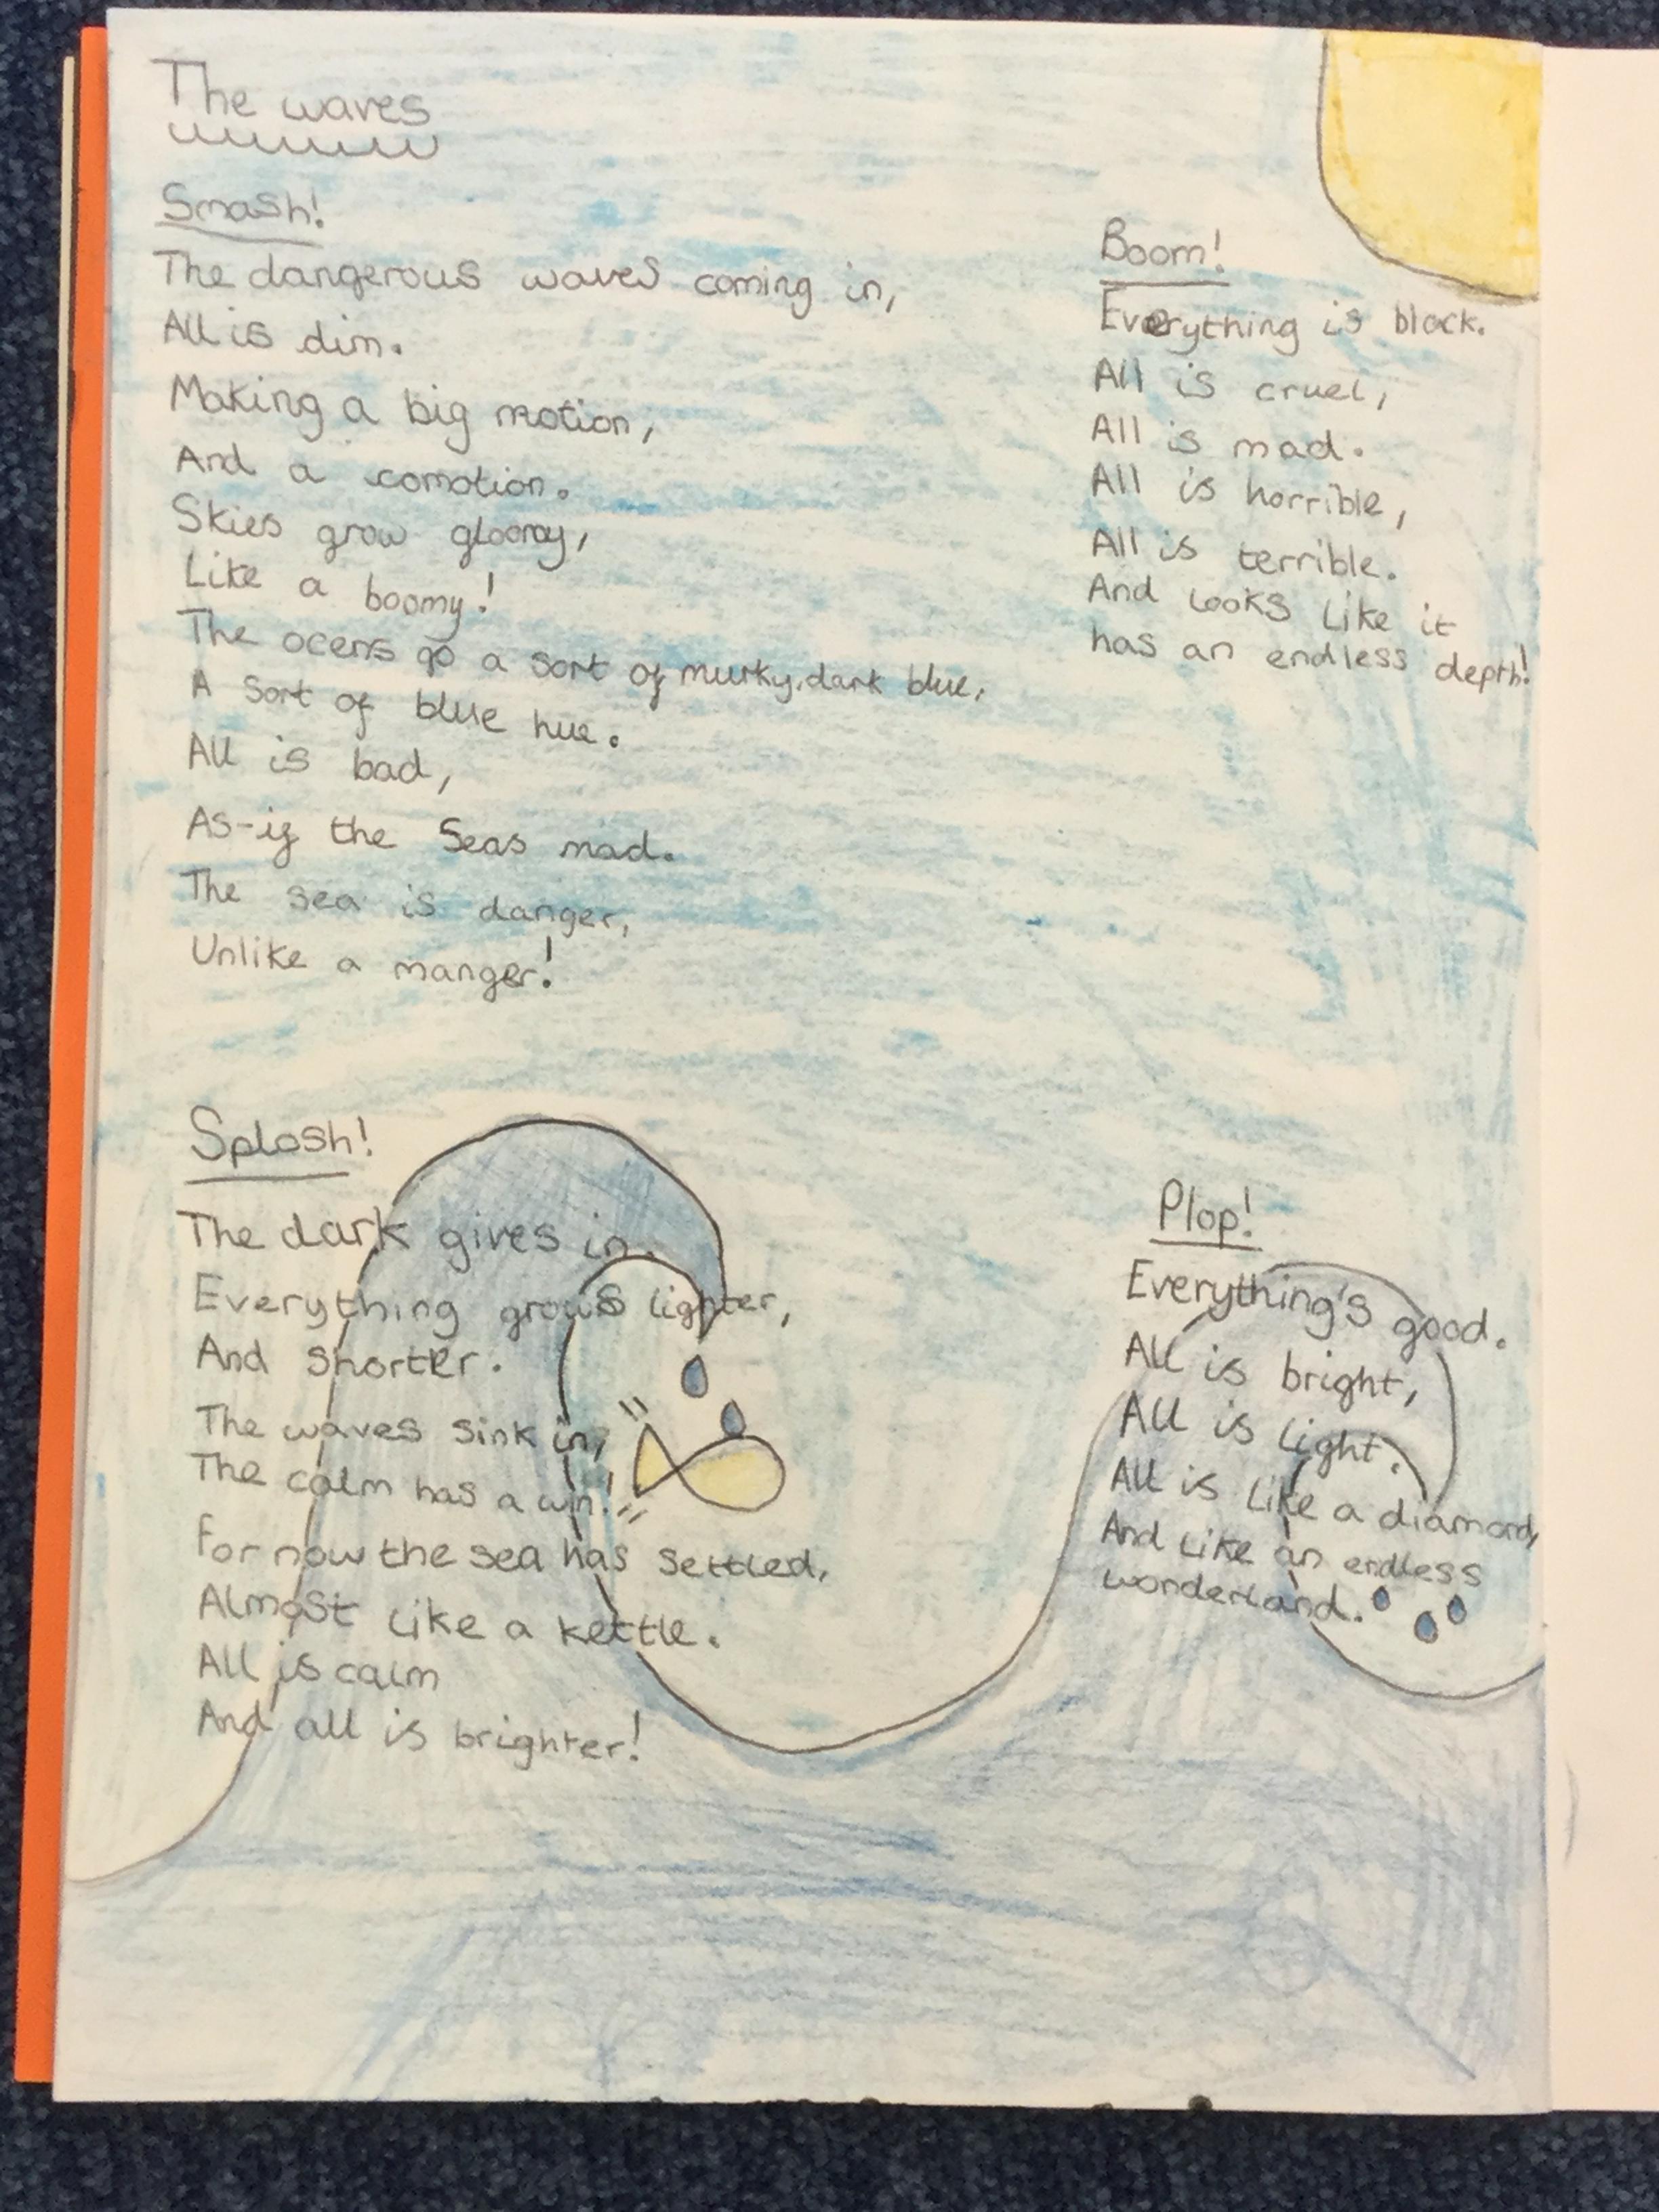 The waves
Smash!
The dangerous waves coming in,
All is dim.
Making a big motion,
And a comotion.
Skies grow gloomy,
Like a boomy!
The ocens go a sort of murky, dark blue,
A sort of blue hue.
All is bad,
As-if the Seas mad.
The sea is danger,
Unlike a manger!
Boom!
Everything is black.
All is cruel,
All is mad.
All is horrible,
All is terrible.
And looks like it
has an endless depth!
Splash!
The dark gives in.
Everything grows lighter,
And shorter.
The waves sink in,
The calm has a win!
For now the sea has settled,
Almost like a kettle.
All is calm
And all is brighter!
Plop!
Everything's good.
All is bright,
All is light.
All is like a diamond,
And like an endless
wonderland.